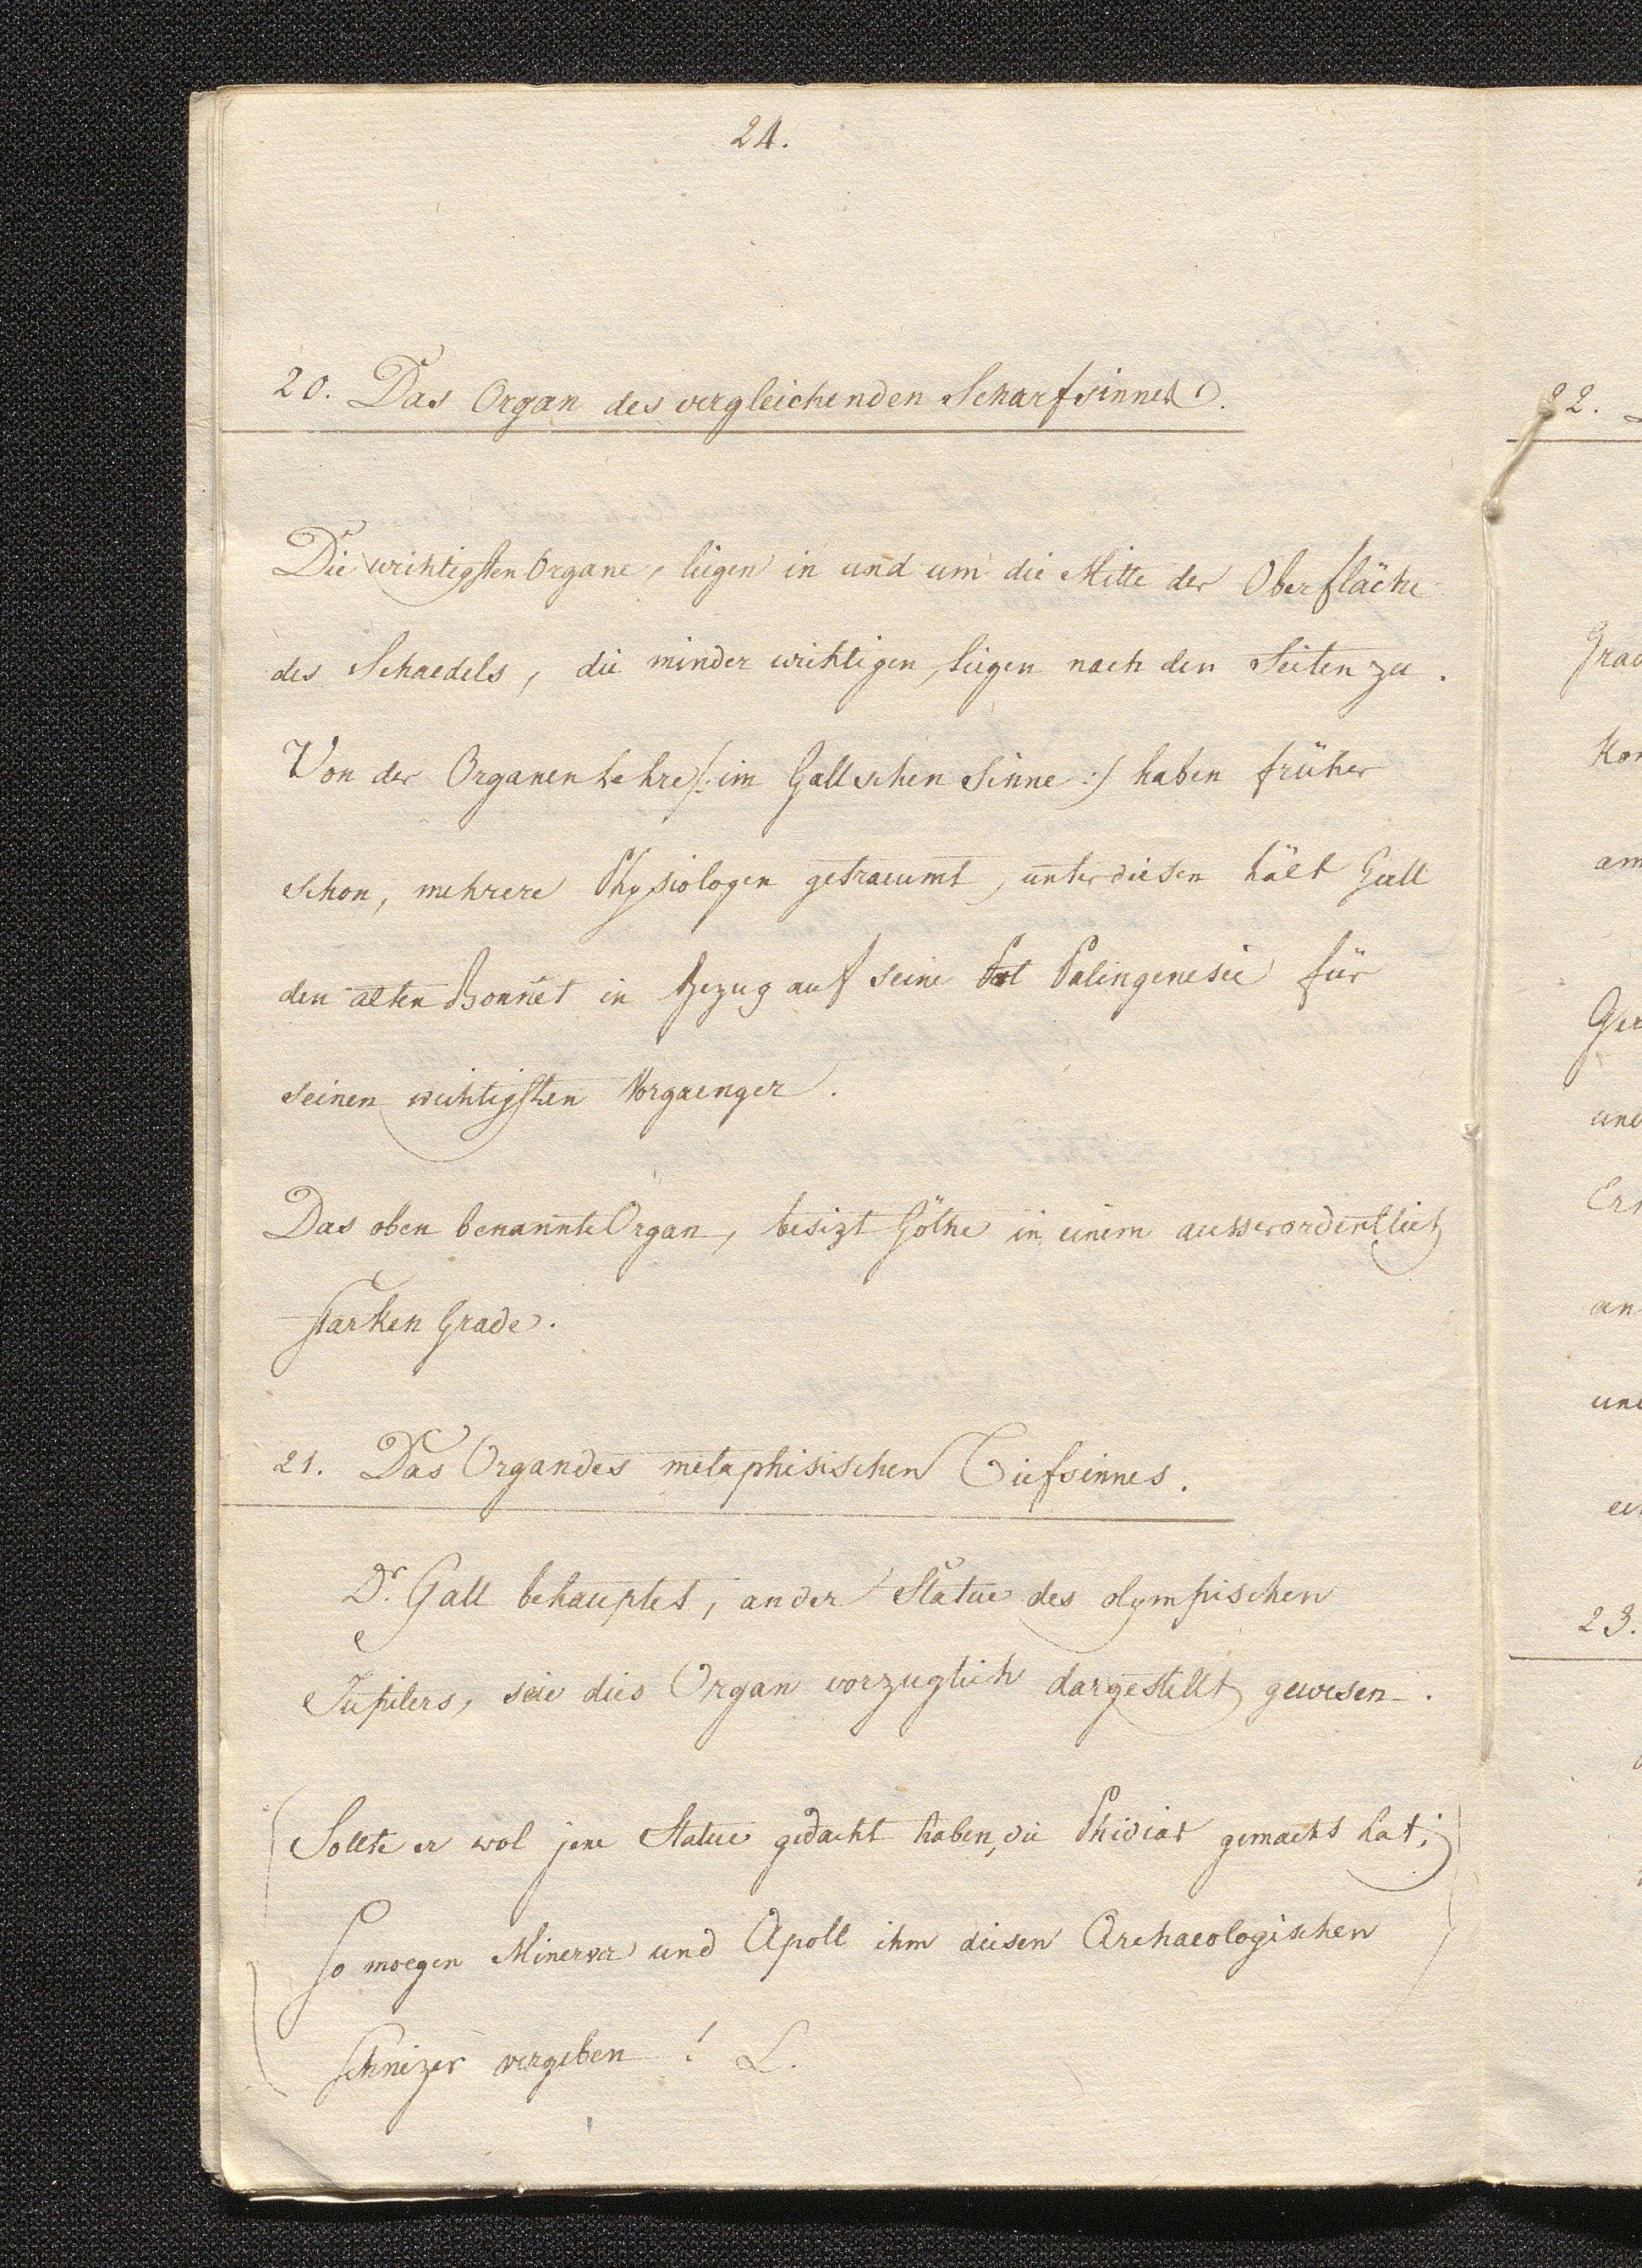 24.
20. Das Organ des vergleichenden Scharfsinnes.
Die wichtigsten Organe, liegen in und um die Mitte der Oberfläche
des Schaedels, die minder wichtigen, liegen nach den Seiten zu.
Von der Organenlehre /: im Gallschen Sinne :/ haben früher
schon, mehrere Physiologen getraeumt, unter diesen hält Gall
den alten Bonnet in Bezug auf seine Palingenesie für
seinen wichtigsten Vorgaenger.
Das oben benannte Organ, besizt Göthe in einem ausserordentlich
starken Grade.
21. Das Organ des metaphisischen Tiefsinnes.
Dr Gall behauptet, an der Statue des olympischen
Jupiters, seie dies Organ vorzuglich dargestellt gewesen.
(Sollte er wol jene Statue gedacht haben, die Phidias gemacht hat;
So moegen Minerva und Apoll ihm diesen Archaeologischen
Schnizer vergeben! L.)
22.
Grad
am
Ger
und
an
und
23.